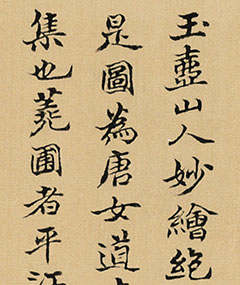 玉壺山人妙繪絕
是圖為唐女道士
集也蕘圃者平江